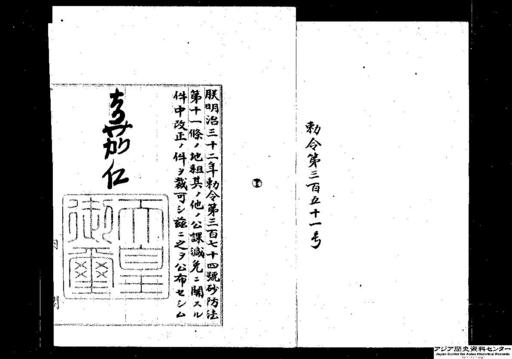 勅令第三百五十一号
朕明治三十二年勅令第三百七十四號砂防法
第十一條ノ地租其ノ他ノ公課減免ニ關スル
件中改正ノ件ヲ裁可シ玆ニ之ヲ公布セシム
嘉仁
天皇
御璽
内閣
アジア歴史資料センター
Japan Center for Asian Historical Records